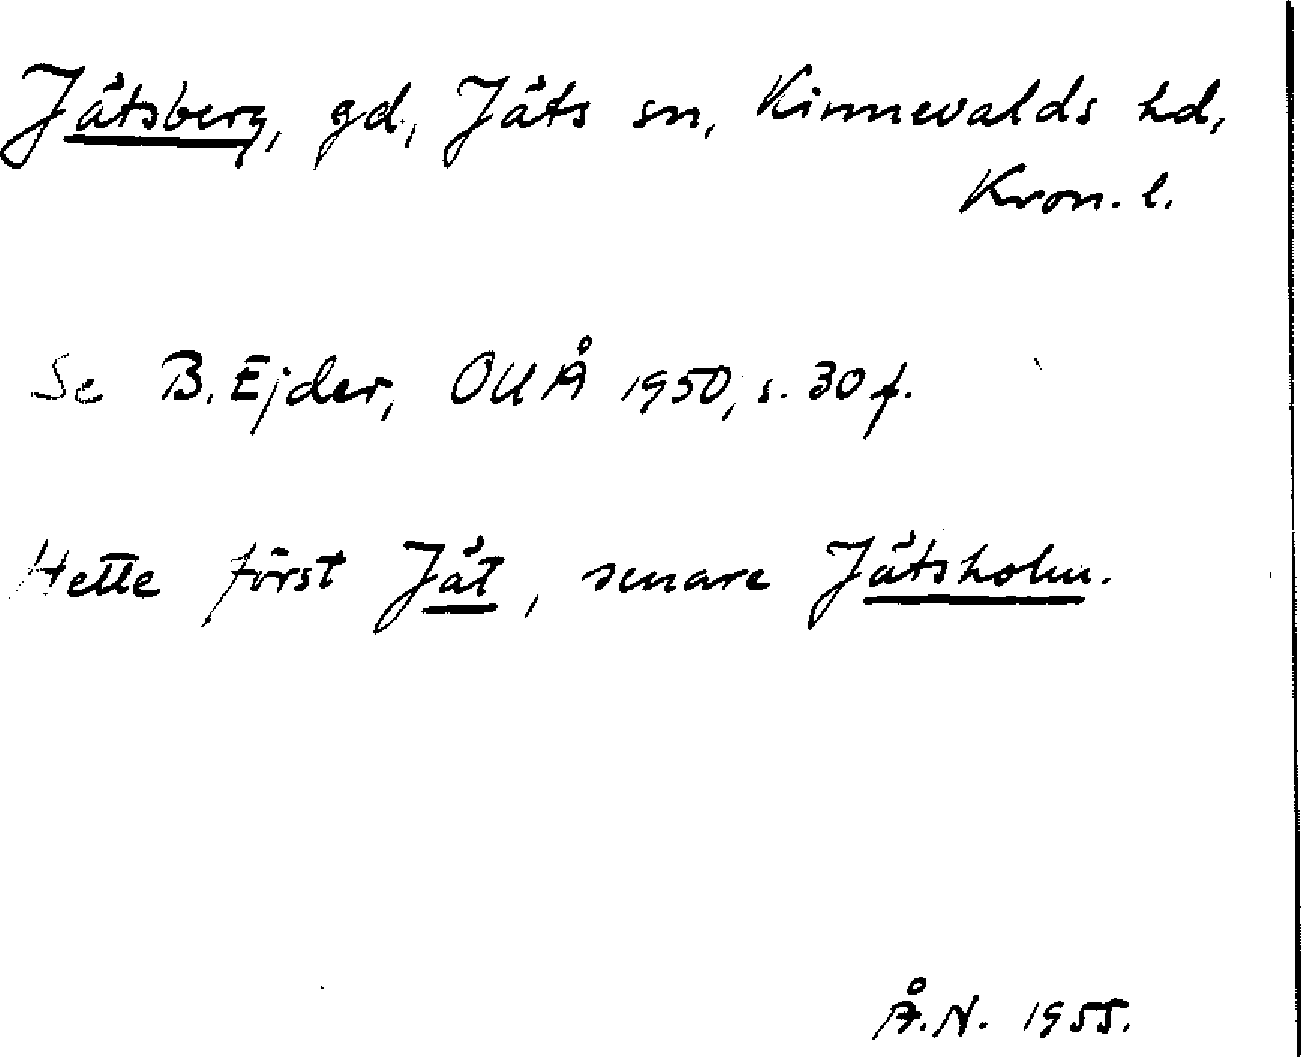 Jätsberg, gd, Jäts sn, Kinnevalds hd,
Kron. l.
Se B. Ejder, OUÅ 1950, s. 30 f.
Hette först Jät, senare Jätsholm.
Å.N. 1955.